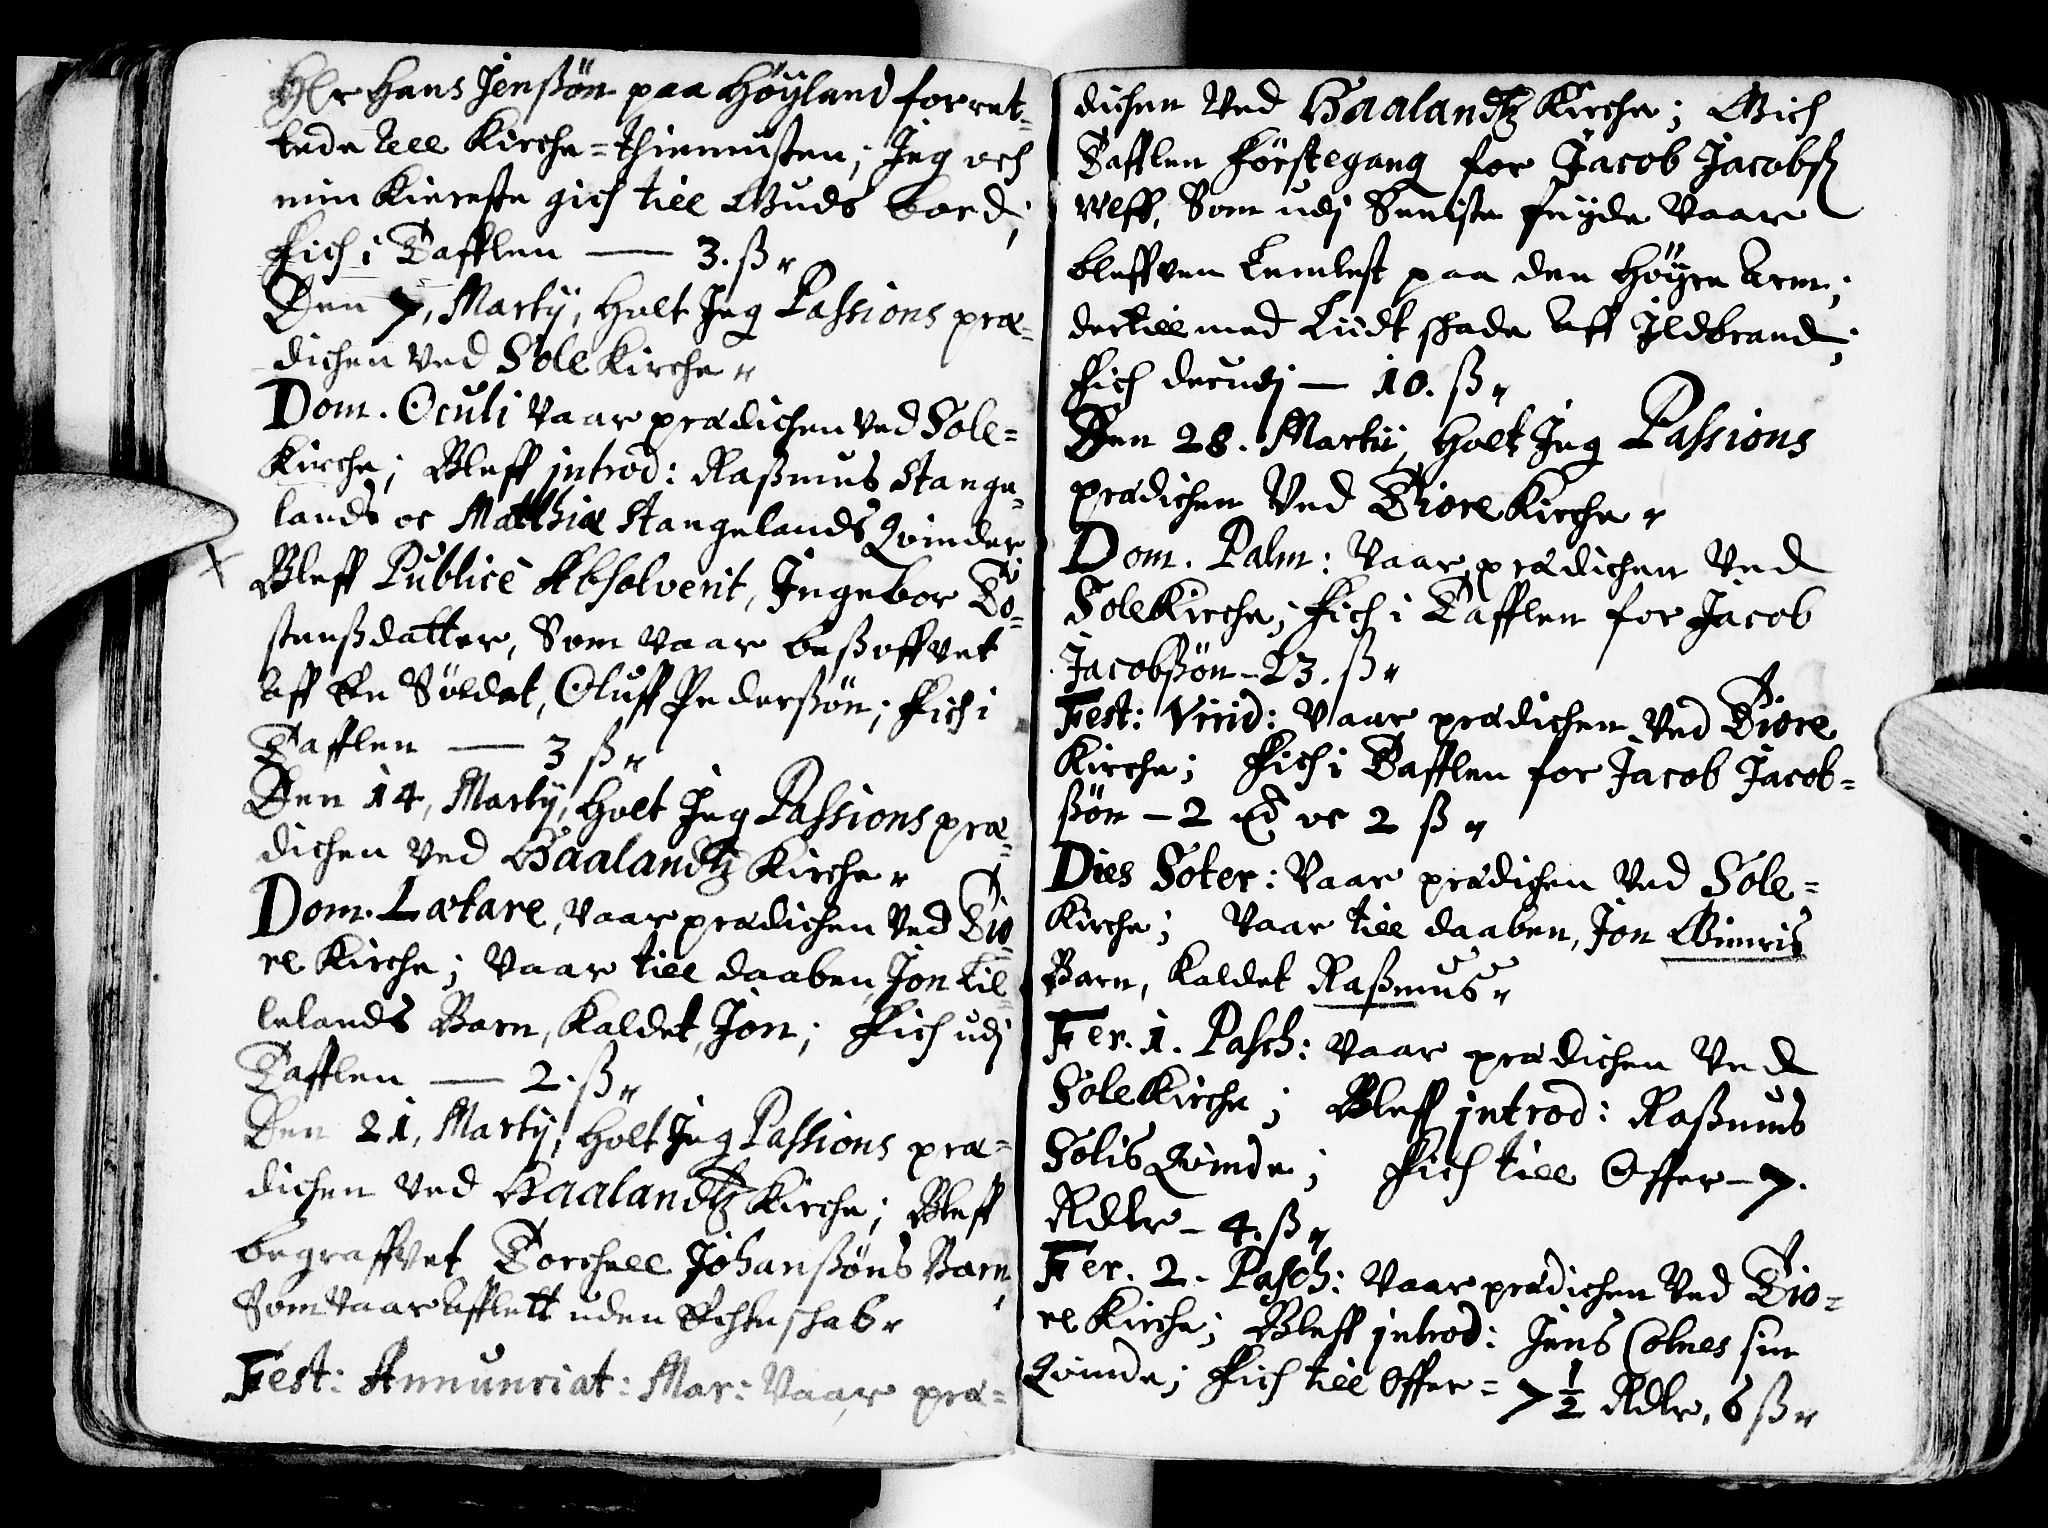 H[e]r Hans Jenßøn paa Høyland forret-
tede till Kirche-thiennisten; Jeg och
min Kiereste gich till Guds bord;
Fich i Tafflen — 3. ß
Den 7, Martij, holt Jeg Passions præ-
dichen ved Sole Kirche
Dom. Oculi vaar prædichen ved Sole-
Kirche; Bleff introd: Raßmus Stange-
lands oc Matthiæ Stangelands Qvinder
Bleff Publicè Absolverit, Ingebor To-
stenßdatter, Som vaar besoffvet
aff En Soldat, Oluff Pederßøn; Fich i
Tafflen — 3 ß
Den 14, Martij, holt Jeg Passions præ-
dichen ved Haalandtz Kirche
Dom. Lætare, vaar prædichen ved Tio-
re Kirche; vaar till daaben, Jon Lil-
lelands Barn, Kaldet, Jon; Fich udj
Tafflen — 2. ß
Den 21, Martij, holt Jeg Passions præ-
dichen ved Haalandtz Kirche; Bleff
begraffvet Torchell Johanßøns Barn,
Som vaar afflett uden Echteschab
Fest: Annunciat: Mar: vaar præ-
dichen ved Haalandtz Kirche; Gich
Tafflen Førstegang for Jacob Jacobß
Weff, Som udj Seniste feyde vaar
bleffven Lemlest paa den Høyre Arm;
dertill med Liidt schade aff Ildbrand;
Fich derudj — 10. ß
Den 28. Martii, holt Jeg Passions
prædichen ved Tiore Kirche
Dom. Palm: vaar prædichen ved
Sole Kirche; Fich i Tafflen for Jacob
Jacobßøn - 23. ß
Fest: Virid: vaar prædichen ved Tiore
Kirche; Fich i Tafflen for Jacob Jacob-
ßøn - 2 oc 2 ß
Dies Soter: vaar prædichen ved Sole-
Kirche; vaar till daaben, Jon Gimris
Barn, Kaldet Raßmus
Fer. 1. Pasch: vaar prædichen ved
Sole Kirche; Bleff introd: Raßmus
Solis Qvinde; Fich till Offer - 7.
Rdlr - 4. ß
Fer. 2. Pasch: vaar prædichen ved Tio-
re Kirche; Bleff introd: Jens Colnes sin
Qvinde; Fich till Offer = 7 1/2 Rdlr, 6 ß